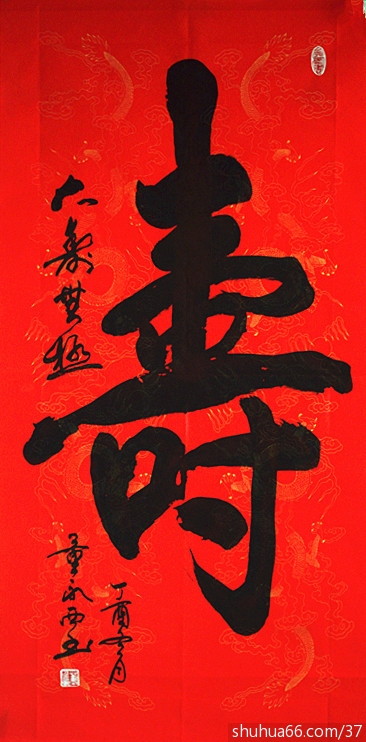 壽
大壽無極
丁酉冬月
董永西书
shuhua66.com/37